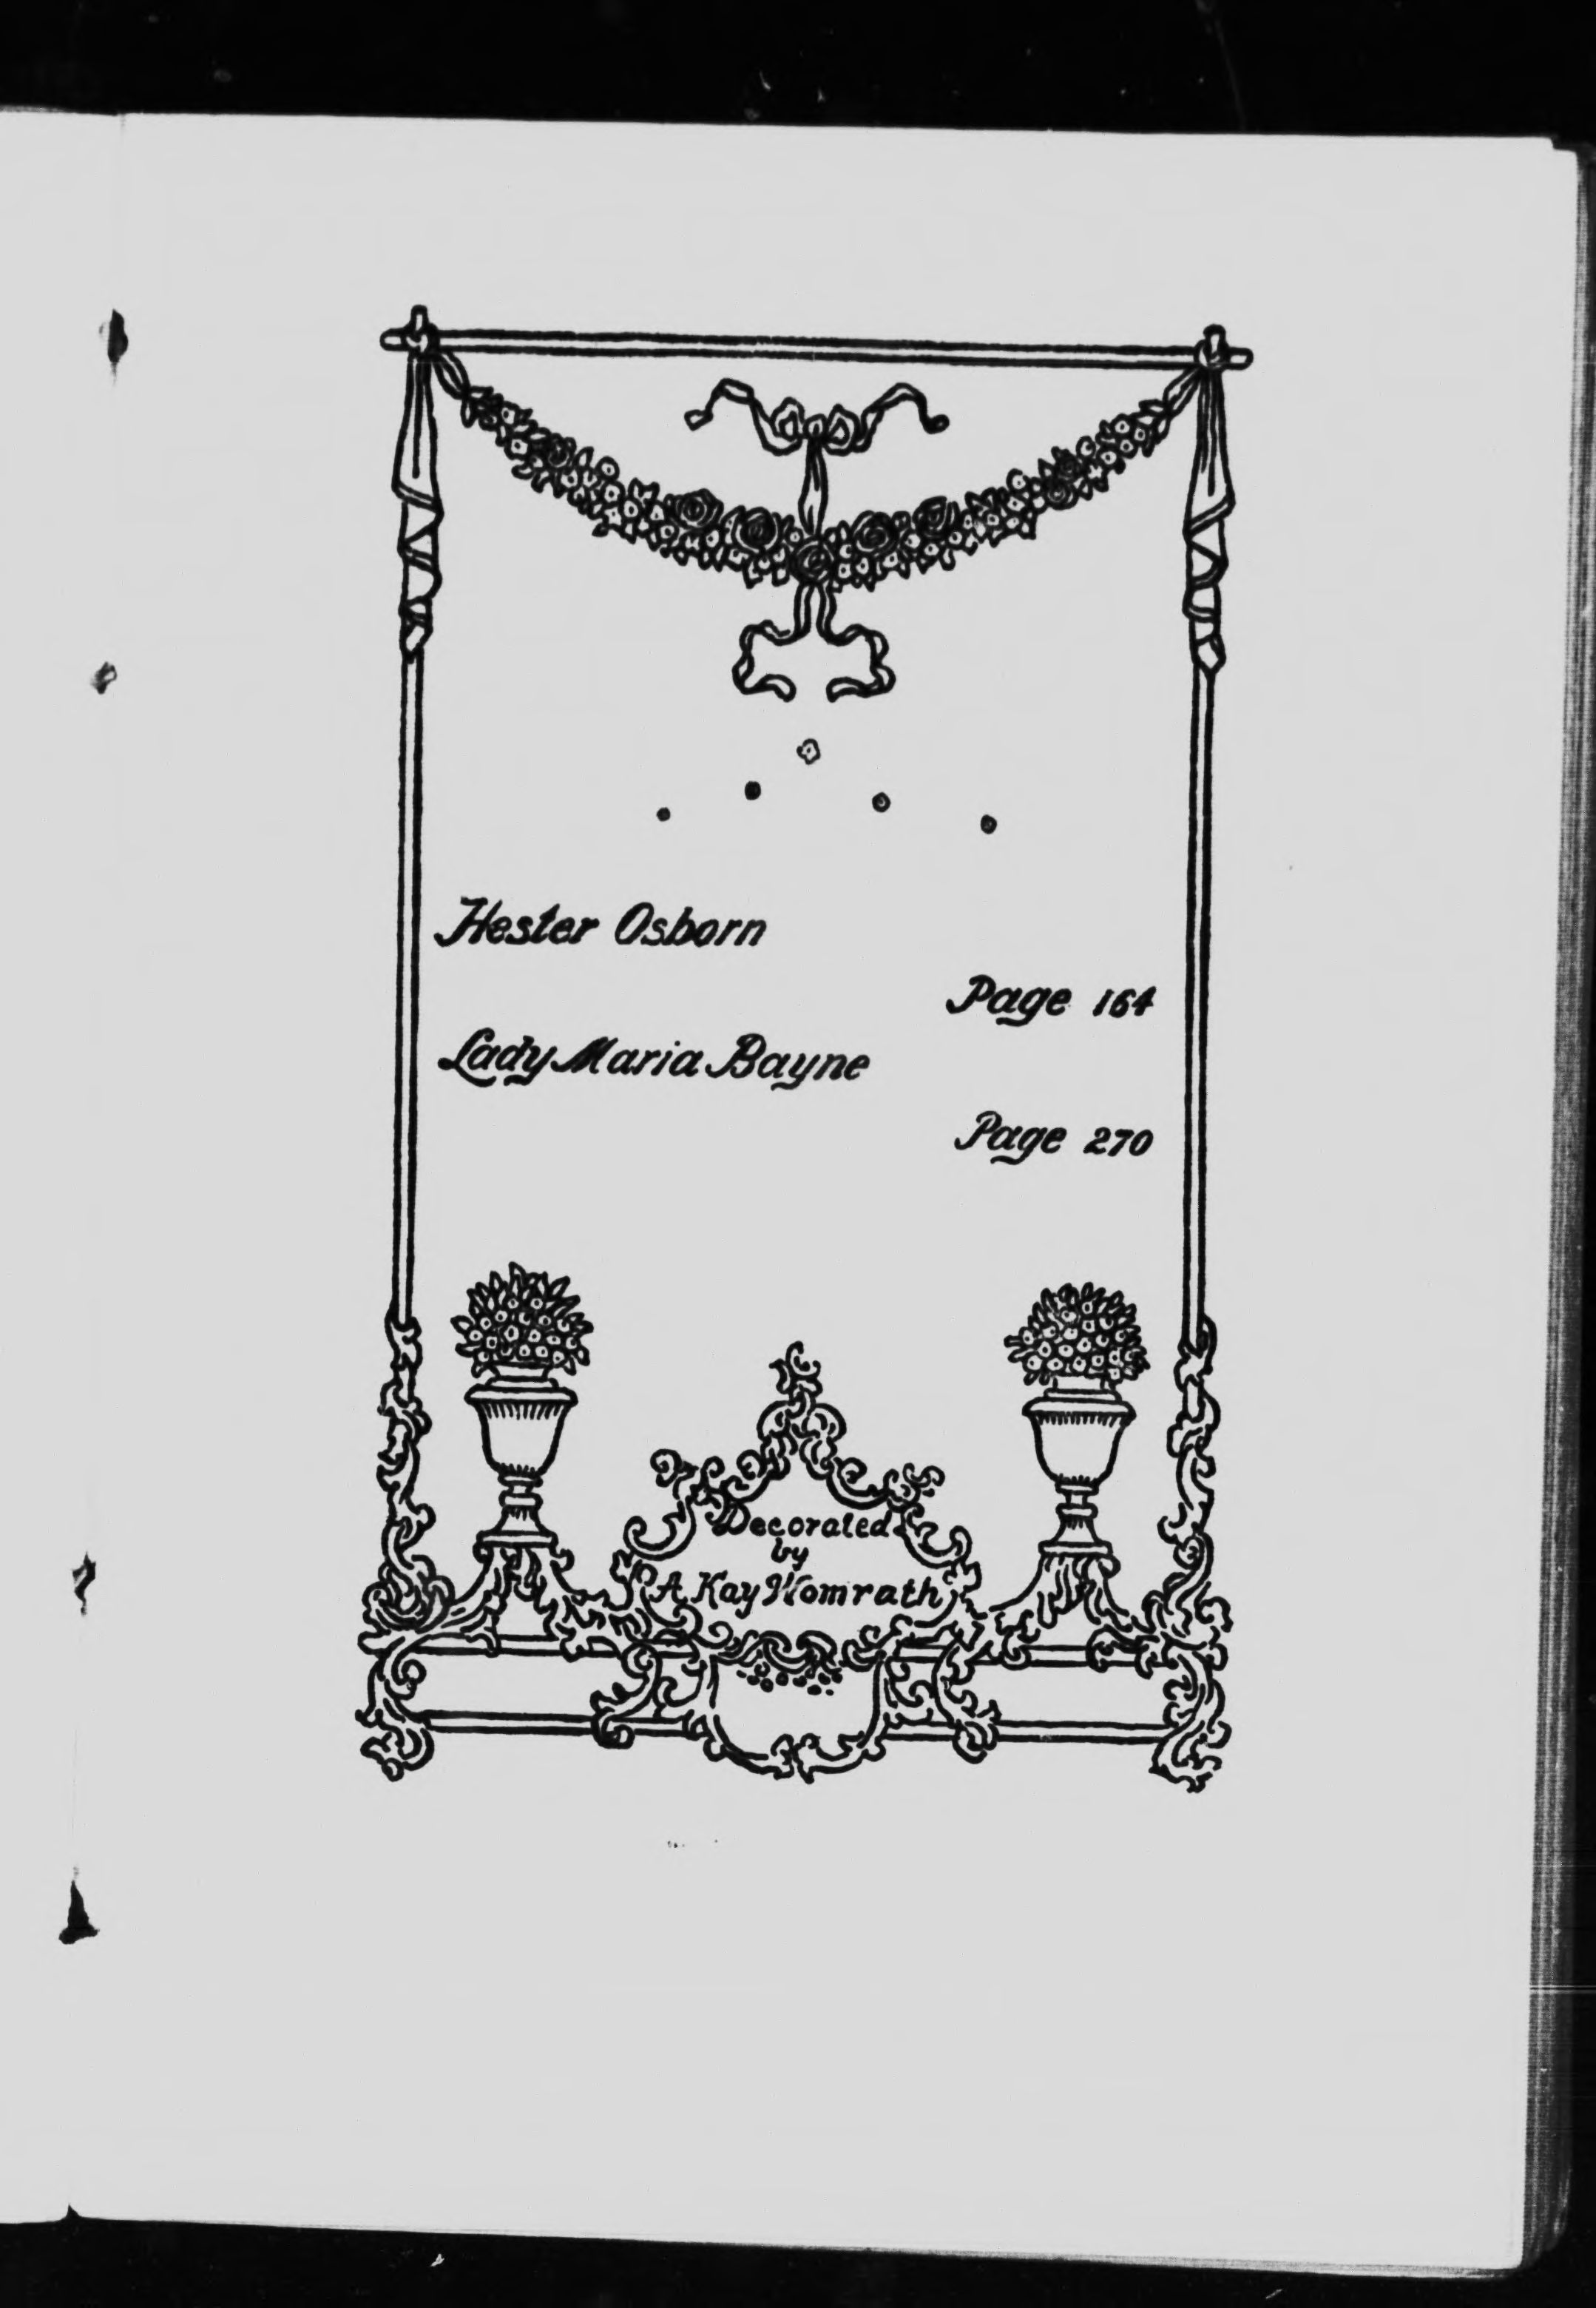 Hester Osborn
Page 164
Lady Maria Bayne
Page 270
Decorated
by
A Kay Womrath